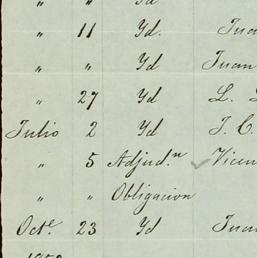 " " Yd
" 11 Yd. Juan
" " Yd Juan
" 27 Yd L.
Julio 2 Yd J. C.
" 5 Adjudⁿ Vicen
" " Obligacion
Octe. 23 Yd Juan